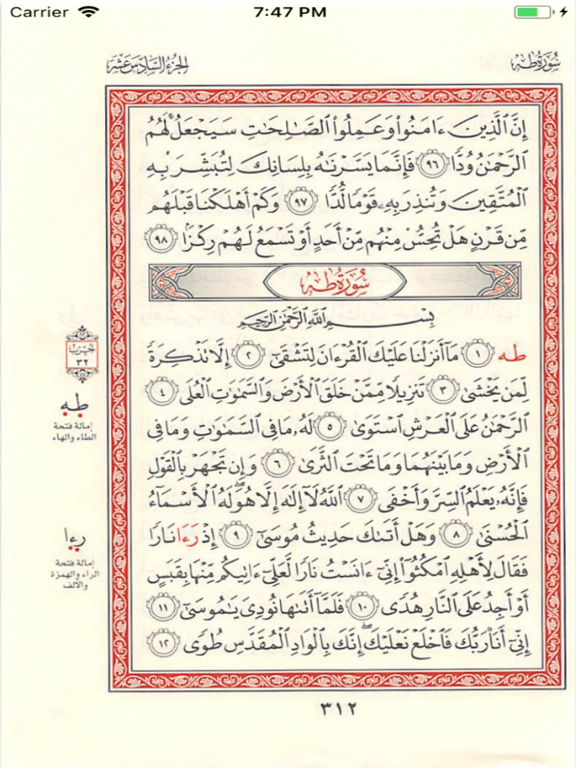 Carrier 7:47 PM
سُورَةُ طه الجُزْءُ السَّادِسَ عَشَرَ
إِنَّ ٱلَّذِينَ ءَامَنُواْ وَعَمِلُواْ ٱلصَّٰلِحَٰتِ سَيَجْعَلُ لَهُمُ
ٱلرَّحْمَٰنُ وُدّٗا ٩٦ فَإِنَّمَا يَسَّرْنَٰهُ بِلِسَانِكَ لِتُبَشِّرَ بِهِ
ٱلْمُتَّقِينَ وَتُنذِرَ بِهِۦ قَوْمٗا لُّدّٗا ٩٧ وَكَمْ أَهْلَكْنَا قَبْلَهُم
مِّن قَرْنٍ هَلْ تُحِسُّ مِنْهُم مِّنْ أَحَدٍ أَوْ تَسْمَعُ لَهُمْ رِكْزَۢا ٩٨
سُورَةُ طه
بِسْمِ ٱللَّهِ ٱلرَّحْمَٰنِ ٱلرَّحِيمِ
طه ١ مَآ أَنزَلْنَا عَلَيْكَ ٱلْقُرْءَانَ لِتَشْقَىٰٓ ٢ إِلَّا تَذْكِرَةٗ
لِّمَن يَخْشَىٰ ٣ تَنزِيلٗا مِّمَّنْ خَلَقَ ٱلْأَرْضَ وَٱلسَّمَٰوَٰتِ ٱلْعُلَى ٤
ٱلرَّحْمَٰنُ عَلَى ٱلْعَرْشِ ٱسْتَوَىٰ ٥ لَهُۥ مَا فِي ٱلسَّمَٰوَٰتِ وَمَا فِي
ٱلْأَرْضِ وَمَا بَيْنَهُمَا وَمَا تَحْتَ ٱلثَّرَىٰ ٦ وَإِن تَجْهَرْ بِٱلْقَوْلِ
فَإِنَّهُۥ يَعْلَمُ ٱلسِّرَّ وَأَخْفَى ٧ ٱللَّهُ لَآ إِلَٰهَ إِلَّا هُوَۖ لَهُ ٱلْأَسْمَآءُ
ٱلْحُسْنَىٰ ٨ وَهَلْ أَتَىٰكَ حَدِيثُ مُوسَىٰٓ ٩ إِذْ رَءَا نَارٗا
فَقَالَ لِأَهْلِهِ ٱمْكُثُوٓاْ إِنِّيٓ ءَانَسْتُ نَارٗا لَّعَلِّيٓ ءَاتِيكُم مِّنْهَا بِقَبَسٍ
أَوْ أَجِدُ عَلَى ٱلنَّارِ هُدٗى ١٠ فَلَمَّآ أَتَىٰهَا نُودِيَ يَٰمُوسَىٰٓ ١١
إِنِّيٓ أَنَا۠ رَبُّكَ فَٱخْلَعْ نَعْلَيْكَۖ إِنَّكَ بِٱلْوَادِ ٱلْمُقَدَّسِ طُوٗى ١٢
حزب
٣٢
طه
إمالة فتحة
الطاء والهاء
رءا
إمالة فتحة
الراء والهمزة
والألف
٣١٢